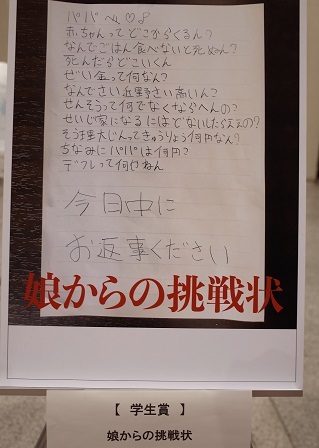 パパへ♡♪
赤ちゃんってどこからくるん?
なんでごはん食べないと死ぬん?
死んだらどこいくん
ぜい金って何なん?
なんでさい近野さい高いん?
せんそうって何でなくならへんの?
せいじ家になるにはどないしたらええの?
そう理大じんってきゅうりょう何円なん?
ちなみにパパは何円?
デフレって何やねん
今日中に
お返事ください
娘からの挑戦状
【 学生賞 】
娘からの挑戦状